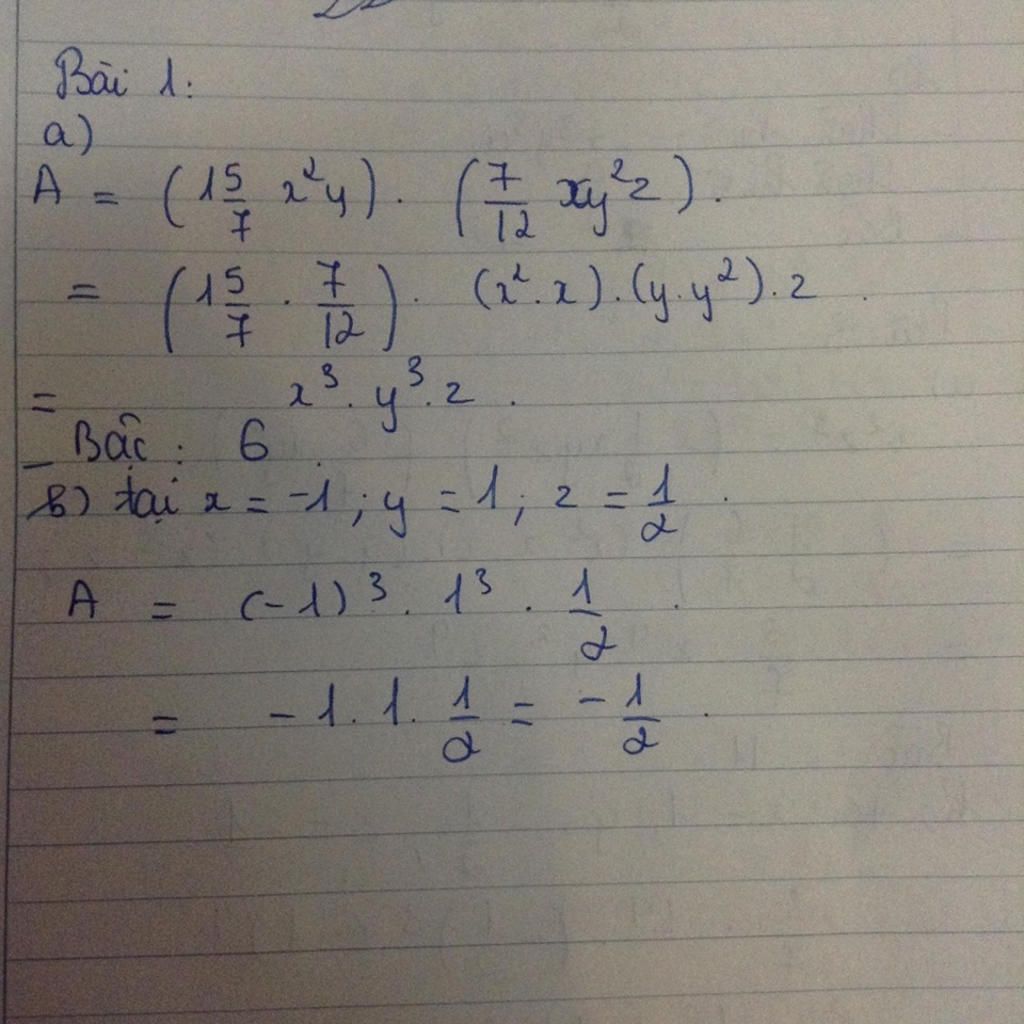 Bài 1:
a)
A = (1 5/7 x²y). (7/12 xy²z).
= (1 5/7 . 7/12). (x².x).(y.y²).z .
= x³. y³. z .
_ Bậc : 6 .
b) tại x = -1 ; y = 1 ; z = 1/2 .
A = (-1)³. 1³ . 1/2 .
= -1. 1. 1/2 = -1/2 .